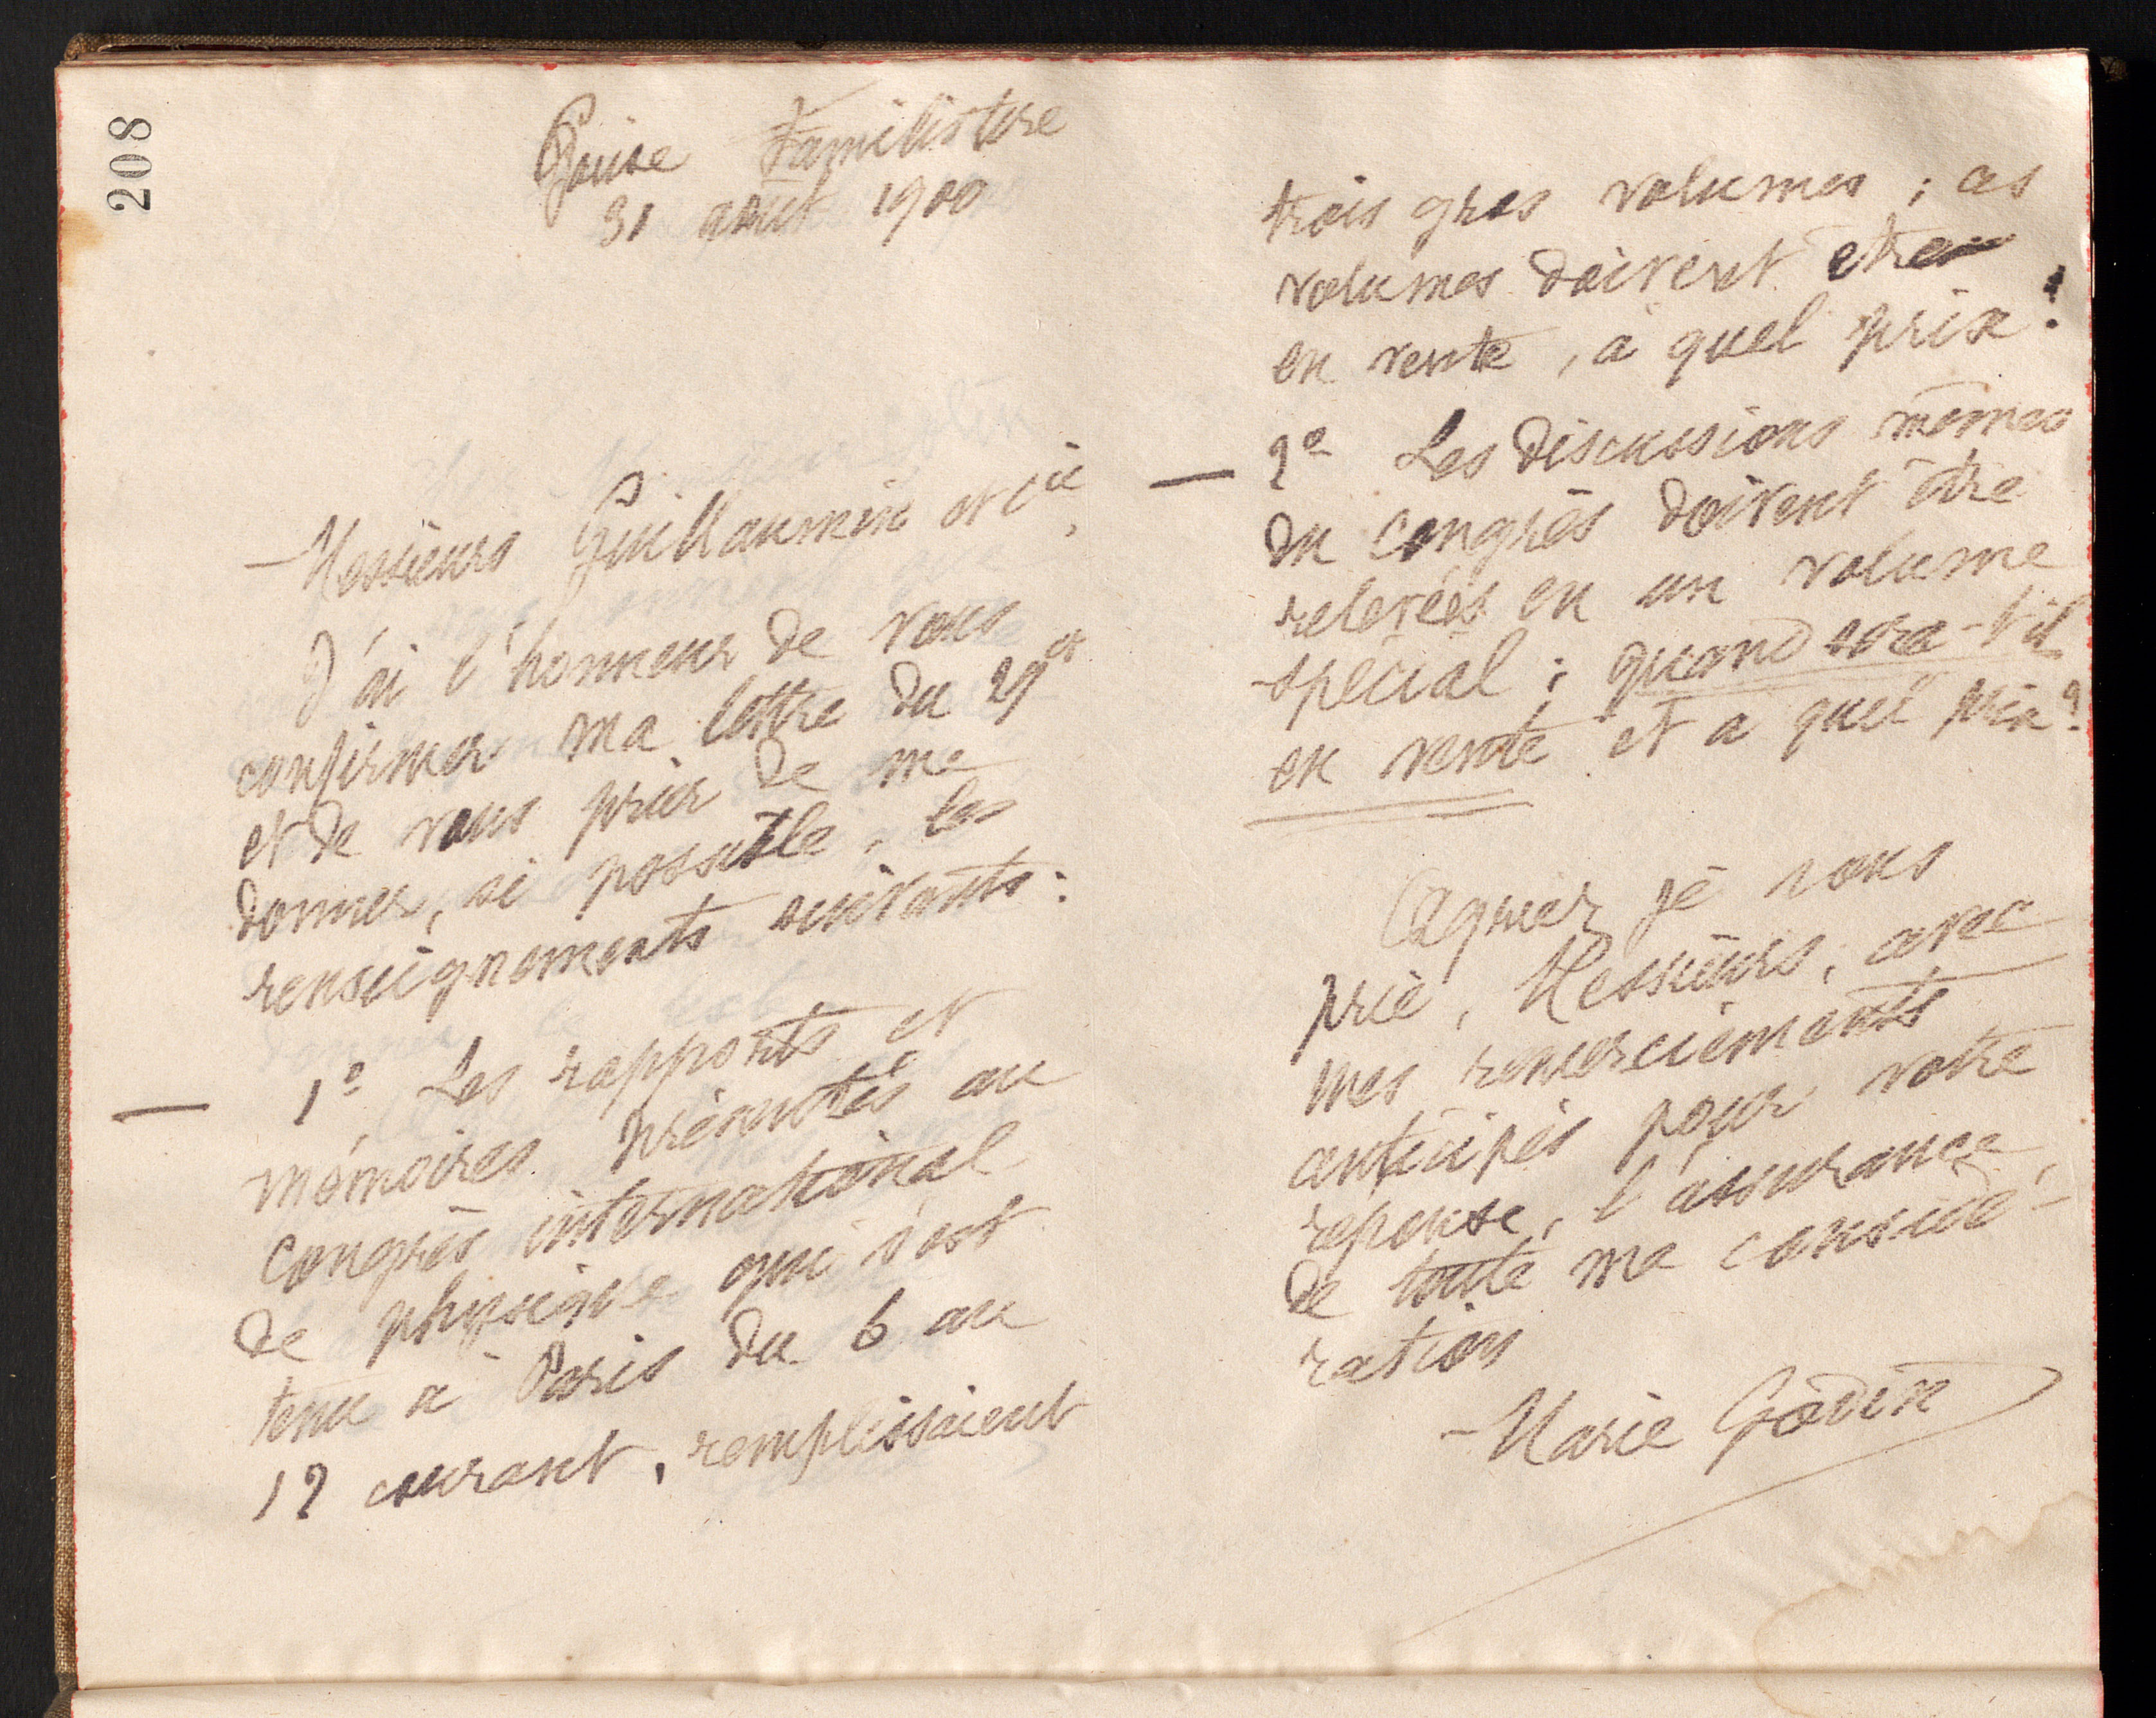 208
Guise Familistère
31 août 1900
Messieurs Guillaumin et Cie,
J'ai l'honneur de vous
confirmer ma lettre du 29 ct
et de vous prier de me
donner, si possible, les
renseignements suivants :
— 1° Les rapports et
mémoires présentés au
Congrès international
de physique qui s'est
tenu à Paris du 6 au
12 courant, remplissaient
trois gros volumes ; ces
volumes doivent être
en vente, à quel prix ?
— 2° Les discussions mêmes
du Congrès doivent être
relevées en un volume
spécial ; quand sera-t-il
en vente et à quel prix ?
Agréez je vous
prie, Messieurs, avec
mes remerciements
anticipés pour votre
réponse, l'assurance
de toute ma considé-
ration
Marie Godin